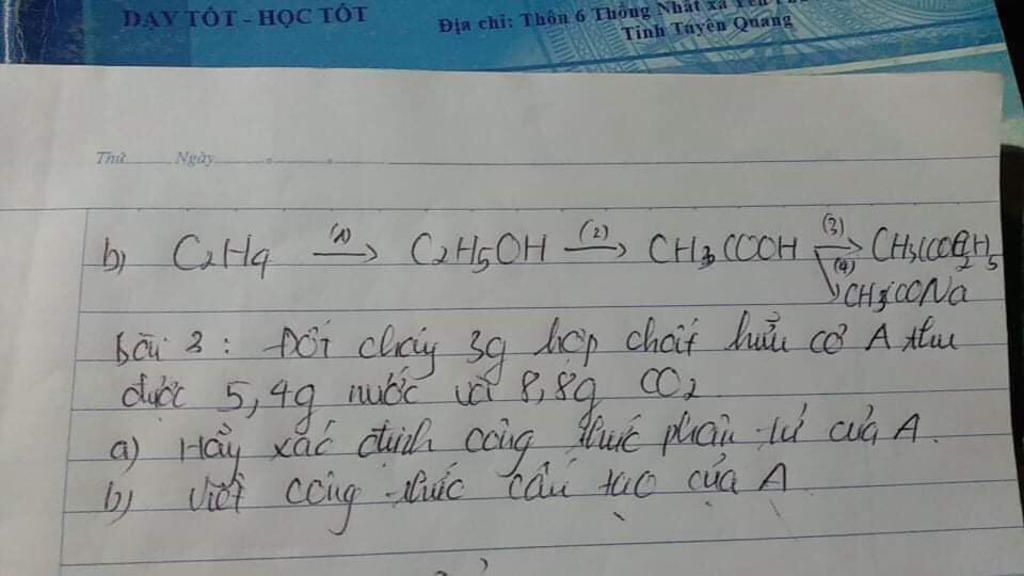 DẠY TỐT - HỌC TỐT
Địa chỉ: Thôn 6 Thống Nhất xã Yên
Tỉnh Tuyên Quang
Thứ Ngày
b) C2H4 (1) → C2H5OH (2) → CH3COOH (3) → CH3COOC2H5
(4) CH3COONa
Bài 3: Đốt cháy 3g hợp chất hữu cơ A thu
được 5,4g nước và 8,8g CO2
a) Hãy xác định công thức phân tử của A.
b) Viết công thức cấu tạo của A